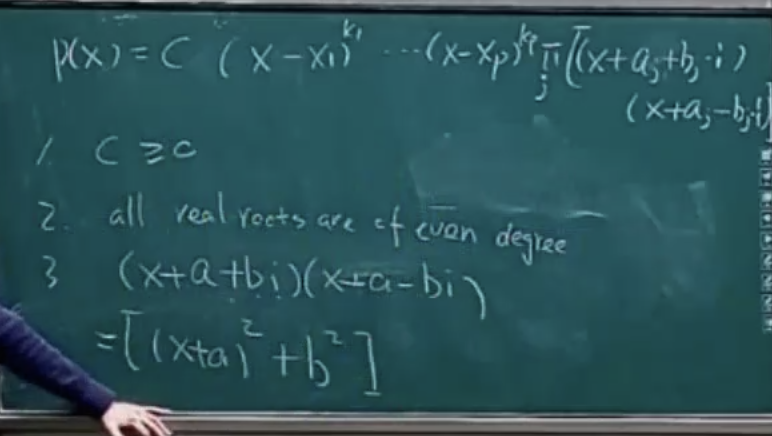 p(x) = C (x-x₁)^k₁ ⋯ (x-xₚ)^kₚ ∏ⱼ [(x+aⱼ+bⱼ·i)
(x+aⱼ-bⱼ·i)]
1. C ≥ c
2. all real roots are of even degree
3 (x+a+bi)(x+a-bi)
= [(x+a)² + b²]